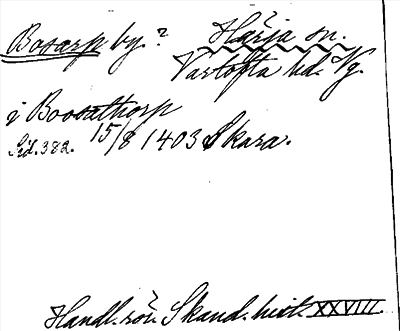 Bosarp by. ? Härja sn.
Vartofta hd. Vg.
i Boosathorp
Sid. 382. 15/8 1403 Skara.
Handl. rör. Skand. hist. XXVIII.